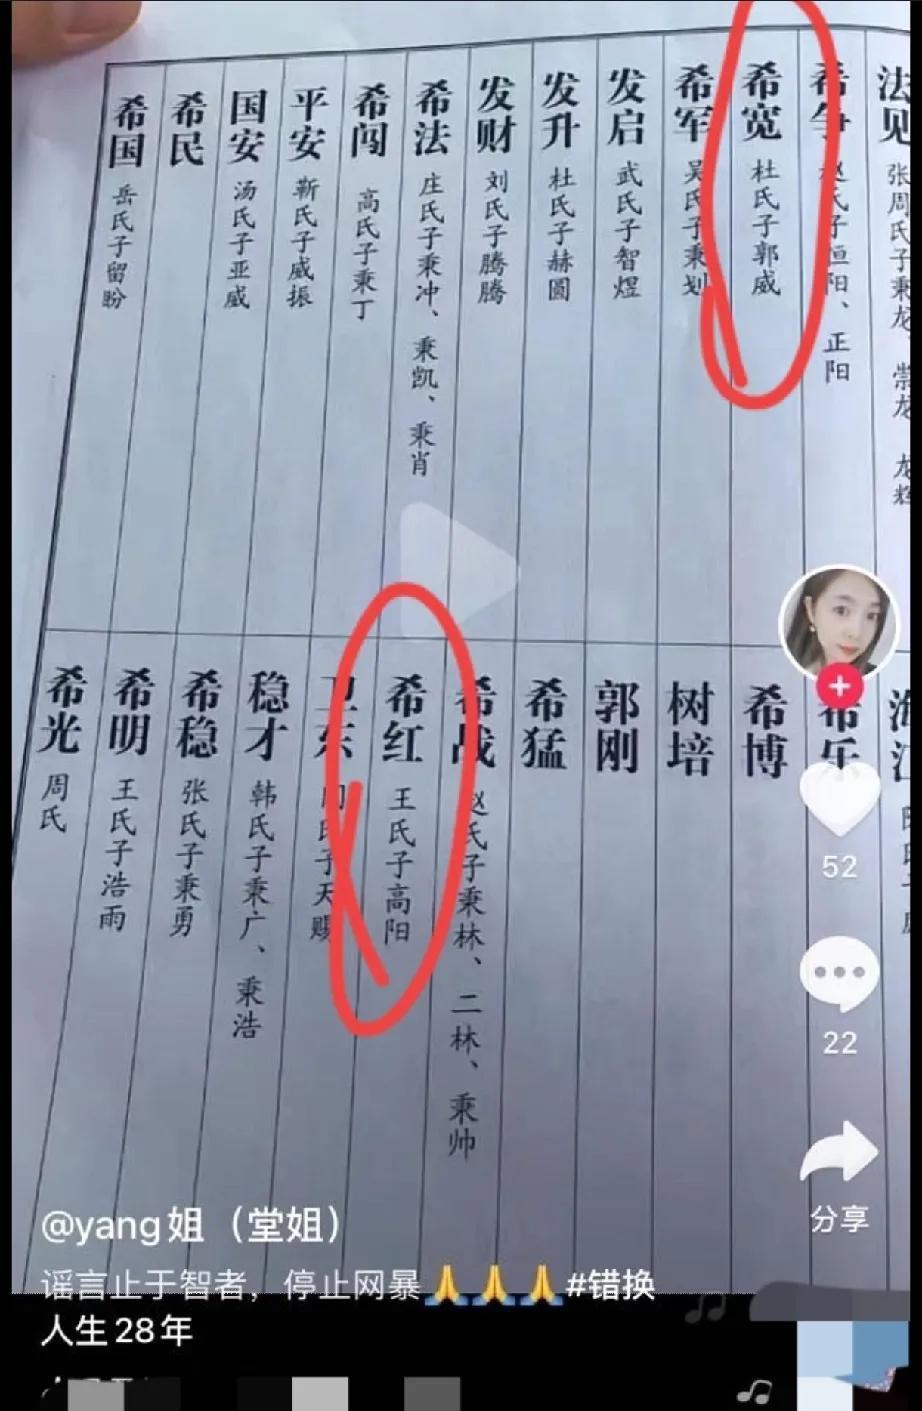 张周氏子秉龙、崇龙、龙辉
希争 赵氏子恒阳、正阳
希宽 杜氏子郭威
希军 吴氏子秉划
发启 武氏子智煜
发升 杜氏子赫圆
发财 刘氏子腾腾
希法 庄氏子秉冲、秉凯、秉肖
希闯 高氏子秉丁
平安 靳氏子威振
国安 汤氏子亚威
希民
希国 岳氏子留盼
希乐
希博
树培
郭刚
希猛
希战 赵氏子秉林、二林、秉帅
希红 王氏子高阳
卫东 闫氏子天赐
稳才 韩氏子秉广、秉浩
希稳 张氏子秉勇
希明 王氏子浩雨
希光 周氏
52
22
分享
@yang姐（堂姐）
谣言止于智者，停止网暴🙏🙏🙏#错换
人生28年